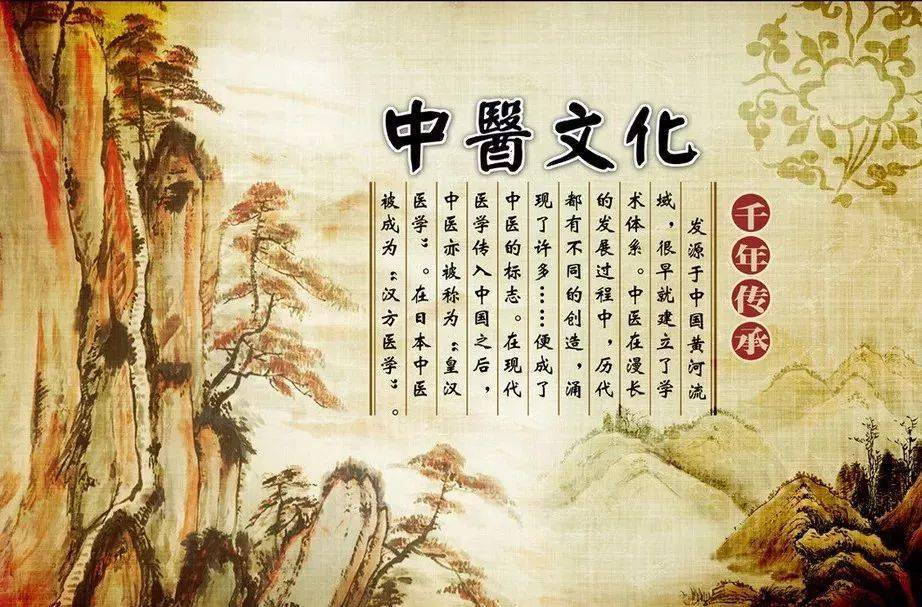 中醫文化
千年传承
发源于中国黄河流
域，很早就建立了学
术体系。中医在漫长
的发展过程中，历代
都有不同的创造，涌
现了许多……便成了
中医的标志。在现代
医学传入中国之后，
中医亦被称为“皇汉
医学”。在日本中医
被成为“汉方医学”。